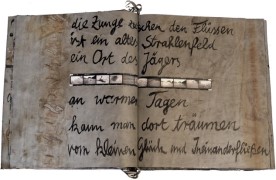 die Zunge zwischen den Flüssen
ist ein altes Strahlenfeld
ein Ort des Jägers
an warmen Tagen
kann man dort träumen
vom kleinen Glück und Ineinanderfließen